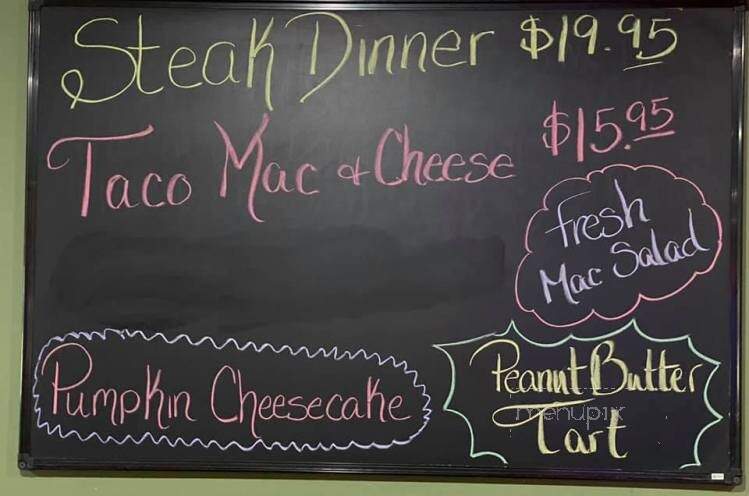 Steak Dinner $19.95
Taco Mac & Cheese $15.95
Fresh
Mac Salad
Pumpkin Cheesecake
Peanut Butter
Tart
menupix